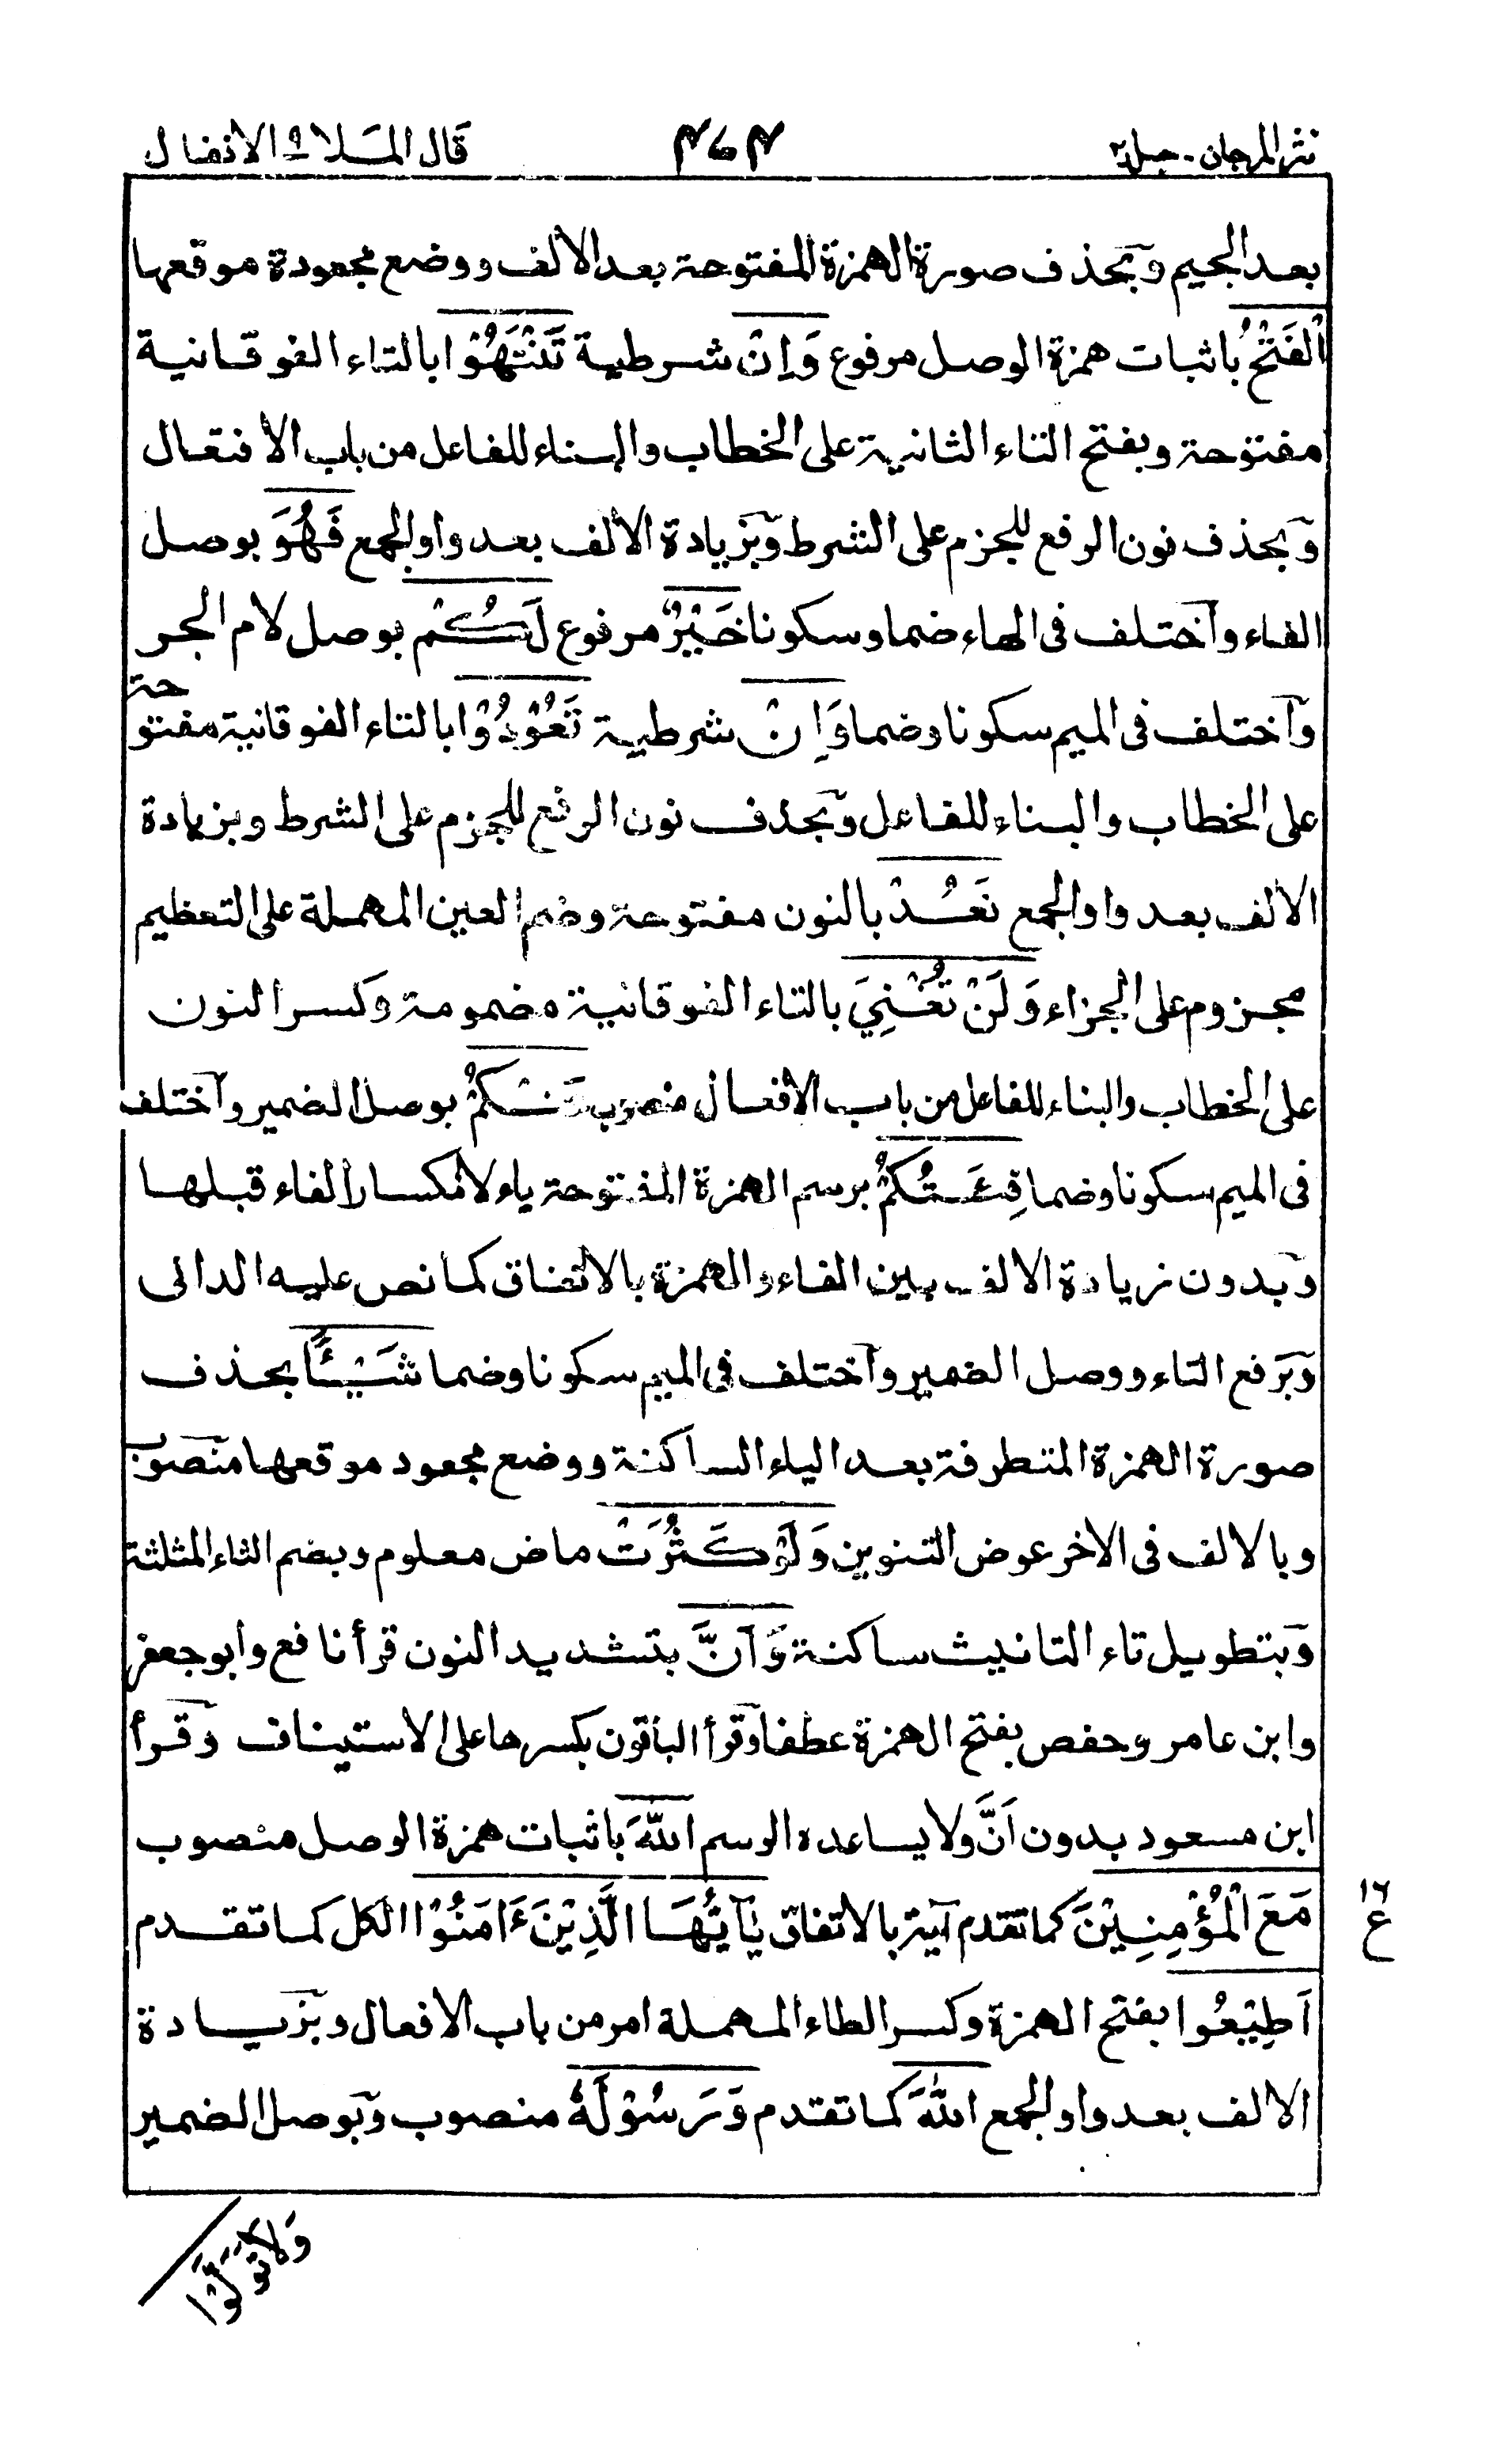 نثر المرجان - جلد ٢
قال الملأ ٩ الانفال
بعد الجيم وبحذف صورة الهمزة المفتوحة بعد الالف ووضع مجعودة موقعها
الْفَتْحُ باثبات همزة الوصل مرفوع وَاِنْ شرطية تَنْتَهُوْا بالتاء الفوقانية
مفتوحة وبفتح التاء الثانية على الخطاب والبناء للفاعل من باب الافتعال
وبحذف نون الرفع للجزم على الشرط وبزيادة الالف بعد واو الجمع فَهُوَ بوصل
الفاء واختلف فى الهاء ضما وسكونا خَيْرٌ مرفوع لَكُمْ بوصل لام الجر
واختلف فى الميم سكونا وضما وَاِنْ شرطية تَعُوْدُوْا بالتاء الفوقانية مفتوحة
على الخطاب والبناء للفاعل وبحذف نون الرفع للجزم على الشرط وبزيادة
الالف بعد واو الجمع نَعُدْ بالنون مفتوحة وضم العين المهملة على التعظيم
مجزوم على الجزاء وَلَنْ تُغْنِيَ بالتاء الفوقانية مضمومة وكسر النون
على الخطاب والبناء للفاعل من باب الافعال منصوب عَنْكُمْ بوصل الضمير واختلف
فى الميم سكونا وضما فِئَتُكُمْ برسم الهمزة المفتوحة ياء لانكسار الفاء قبلها
وبدون زيادة الالف بين الفاء والهمزة بالاتفاق كما نص عليه الدانى
وبرفع التاء ووصل الضمير واختلف فى الميم سكونا وضما شَيْـًٔا بحذف
صورة الهمزة المتطرفة بعد الياء الساكنة ووضع مجعود موقعها منصوب
وبالالف فى الاخر عوض التنوين وَلَوْ كَثُرَتْ ماض معلوم وبضم الثاء المثلثة
وبتطويل تاء التانيث ساكنة وَاَنَّ بتشديد النون قرأ نافع وابو جعفر
وابن عامر وحفص بفتح الهمزة عطفا وقرأ الباقون بكسرها على الاستيناف وقرأ
ابن مسعود بدون اَنَّ ولا يساعده الرسم اللّٰهَ باثبات همزة الوصل منصوب
مَعَ الْمُؤْمِنِيْنَ كما تقدم آية بالاتفاق يٰٓاَيُّهَا الَّذِيْنَ ءَامَنُوْا الكل كما تقدم
١٦
ع
اَطِيْعُوا بفتح الهمزة وكسر الطاء المهملة امر من باب الافعال وبزيادة
الالف بعد واو الجمع اللّٰهَ كما تقدم وَرَسُوْلَهٗ منصوب وبوصل الضمير
وَلَا تَوَلَّوْا